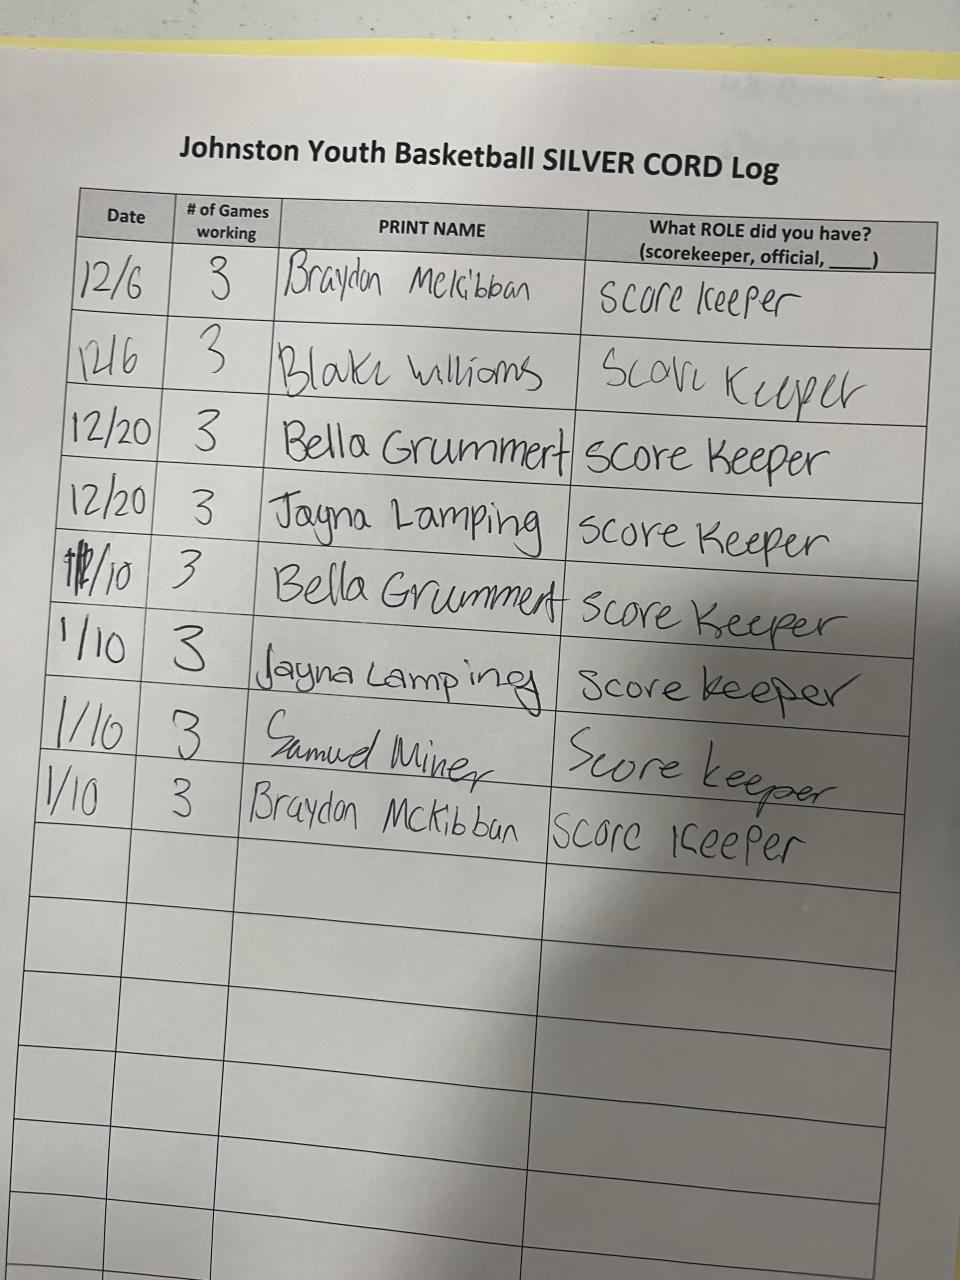 Johnston Youth Basketball SILVER CORD Log
Date # of Games working PRINT NAME What ROLE did you have? (scorekeeper, official, ____)
12/6 3 Braydon McKibban score keeper
12/6 3 Blake Williams Score Keeper
12/20 3 Bella Grummert score keeper
12/20 3 Jayna Lamping score keeper
/10 3 Bella Grummert score keeper
1/10 3 Jayna Lamping score keeper
1/10 3 Samuel Miner Score keeper
1/10 3 Braydon McKibban score keeper